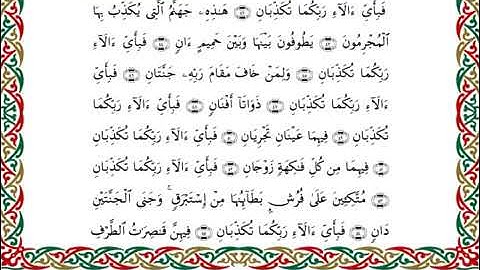 فَبِأَيِّ ءَالَآءِ رَبِّكُمَا تُكَذِّبَانِ ۝ هَٰذِهِۦ جَهَنَّمُ ٱلَّتِي يُكَذِّبُ بِهَا
ٱلْمُجْرِمُونَ ۝ يَطُوفُونَ بَيْنَهَا وَبَيْنَ حَمِيمٍ ءَانٍ ۝ فَبِأَيِّ ءَالَآءِ
رَبِّكُمَا تُكَذِّبَانِ ۝ وَلِمَنْ خَافَ مَقَامَ رَبِّهِۦ جَنَّتَانِ ۝ فَبِأَيِّ
ءَالَآءِ رَبِّكُمَا تُكَذِّبَانِ ۝ ذَوَاتَآ أَفْنَانٍ ۝ فَبِأَيِّ ءَالَآءِ رَبِّكُمَا
تُكَذِّبَانِ ۝ فِيهِمَا عَيْنَانِ تَجْرِيَانِ ۝ فَبِأَيِّ ءَالَآءِ رَبِّكُمَا تُكَذِّبَانِ
۝ فِيهِمَا مِن كُلِّ فَٰكِهَةٍ زَوْجَانِ ۝ فَبِأَيِّ ءَالَآءِ رَبِّكُمَا تُكَذِّبَانِ
۝ مُتَّكِـِٔينَ عَلَىٰ فُرُشٍۭ بَطَآئِنُهَا مِنْ إِسْتَبْرَقٍ ۚ وَجَنَى ٱلْجَنَّتَيْنِ
دَانٍ ۝ فَبِأَيِّ ءَالَآءِ رَبِّكُمَا تُكَذِّبَانِ ۝ فِيهِنَّ قَٰصِرَٰتُ ٱلطَّرْفِ